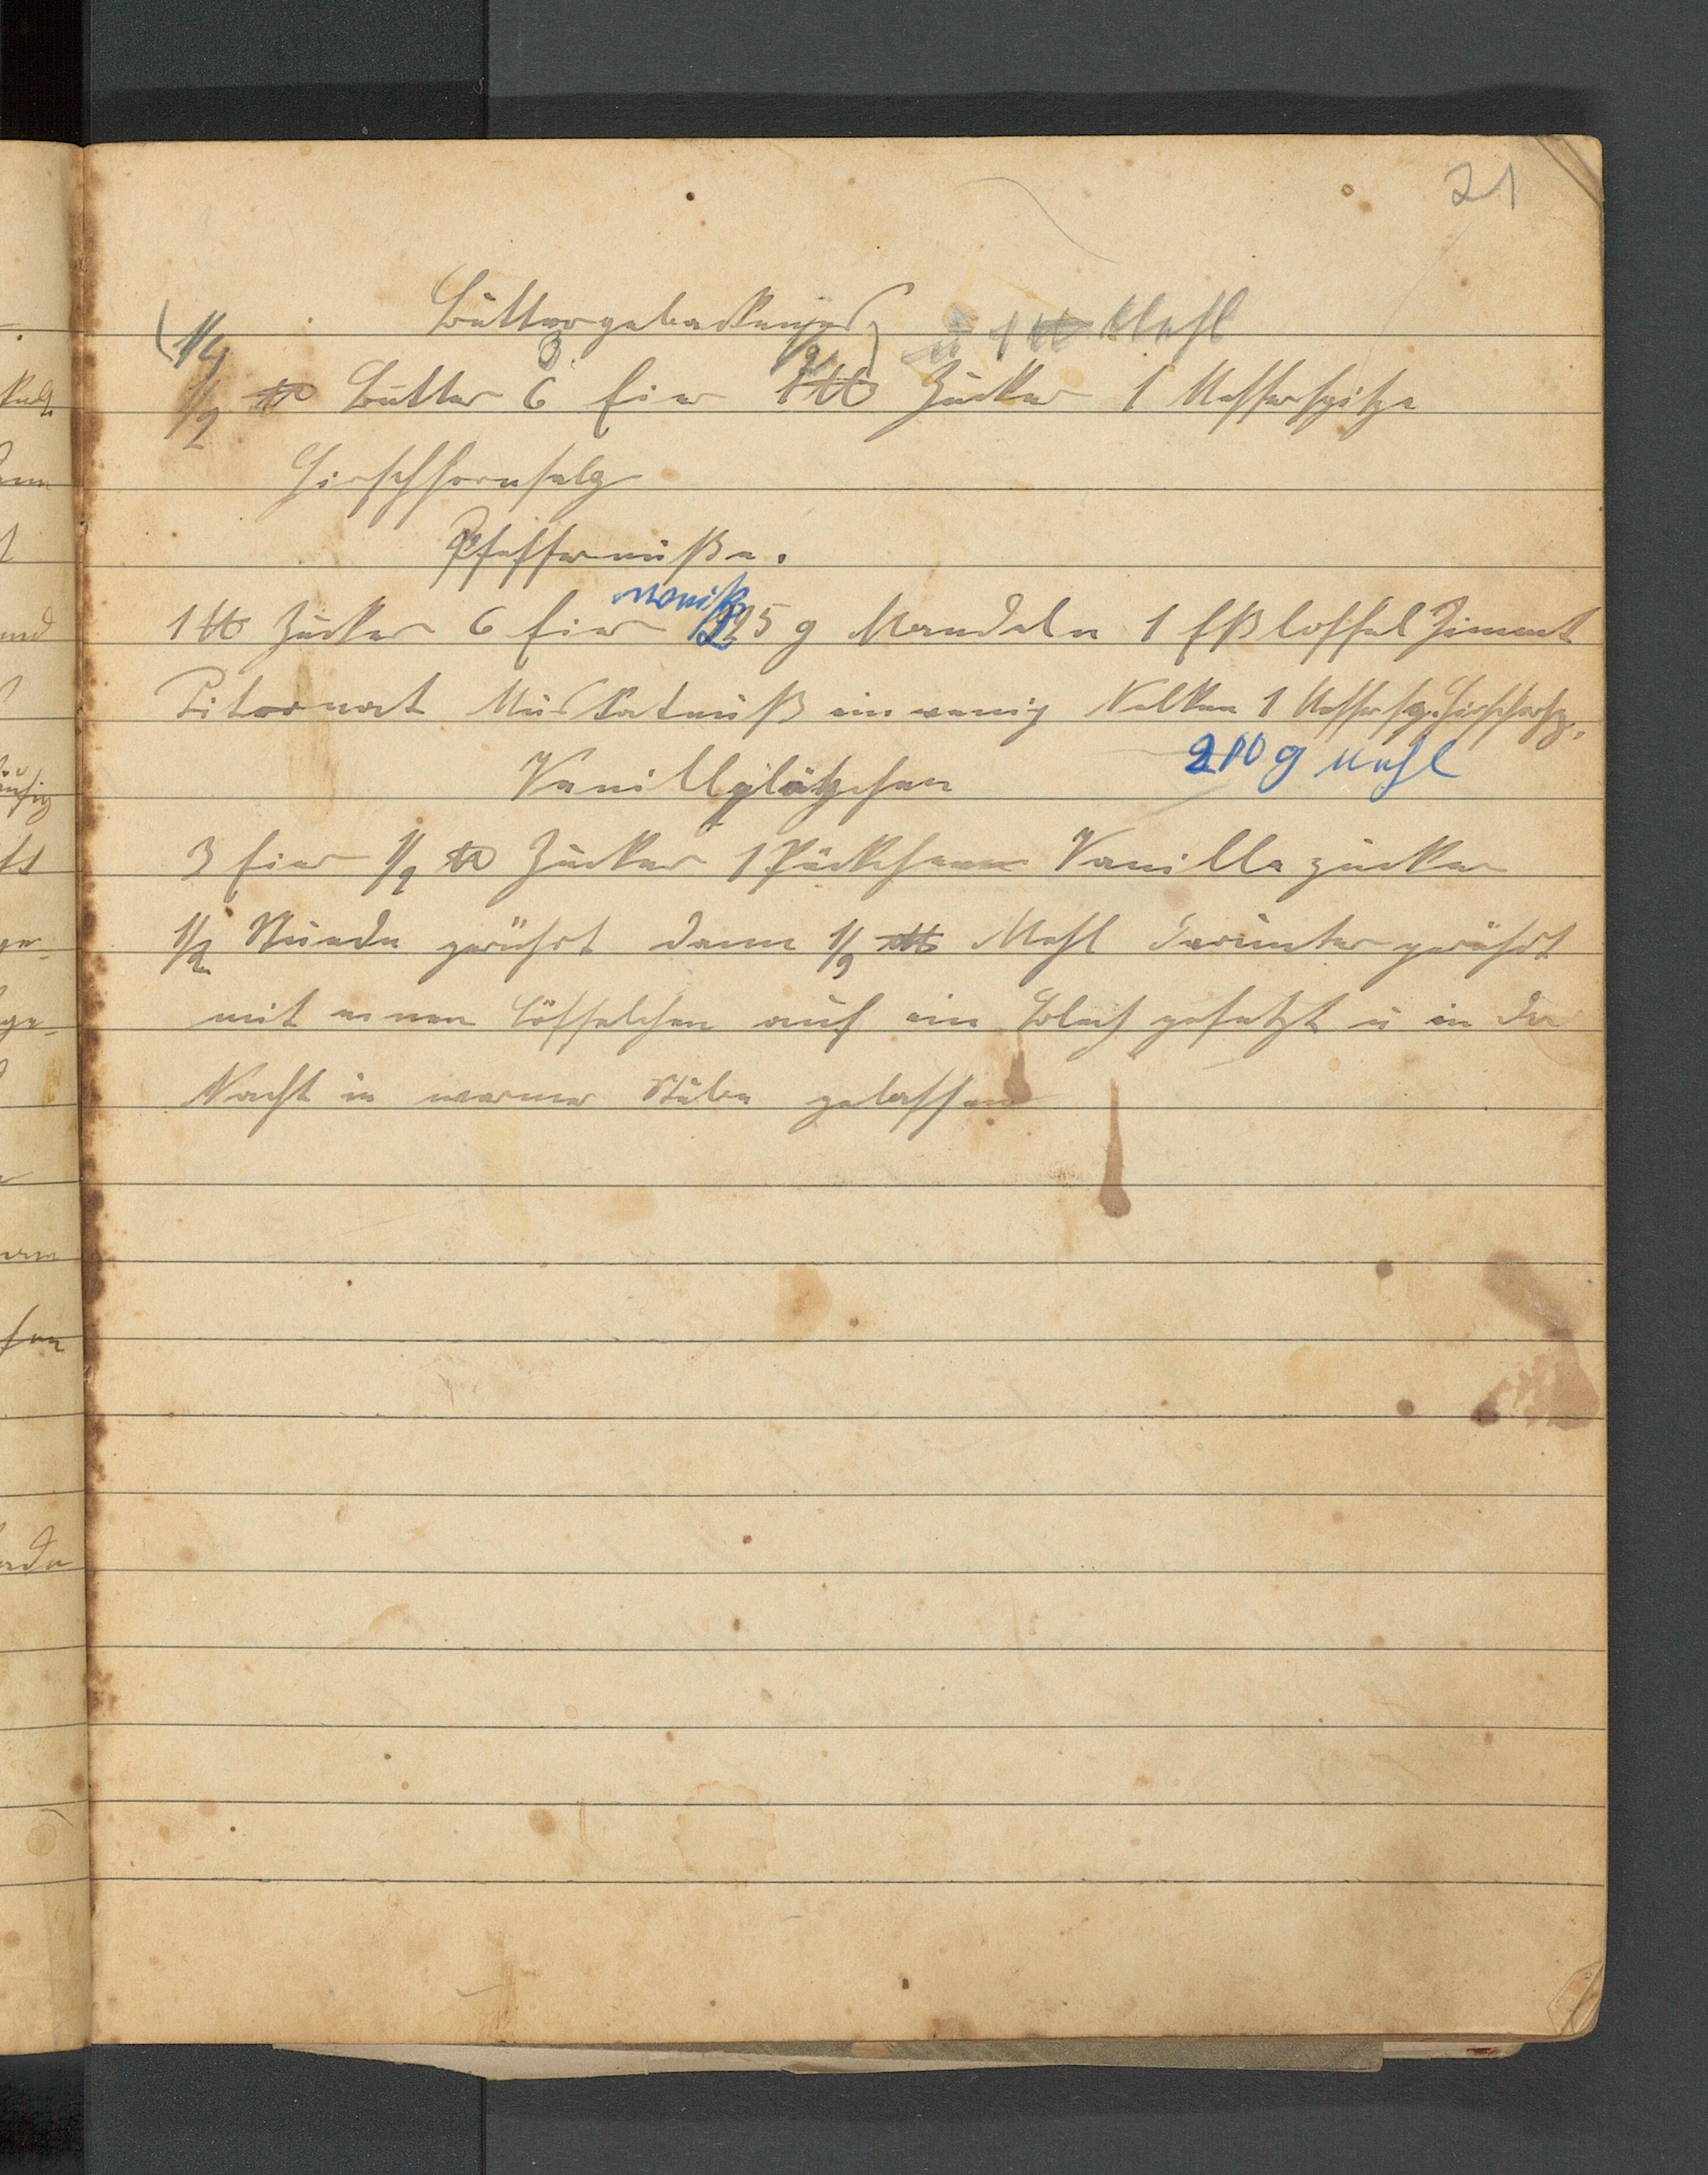 21
Buttergebackenes
u 1 ℔ Mehl
(1/4 3 1/2)
1/2 ℔ Butter 6 Eier 1 ℔ Zucker 1 Messerspitze
Hirschhornsalz
Pfeffernüße.
1 ℔ Zucker 6 Eier 125 g Mandeln 1 Eßloffel Zimmt
Zitoronat Muskatnuß ein wenig Nelken 1 Messersp. Hirschhsz.
210 g Mehl
Vanillplätzchen
3 Eier 1/2 ℔ Zucker 1 Päckchen Vanillezucker
1/2 Stunde gerührt dann 1/2 ℔ Mehl darunter gerührt
mit einen Löffelchen auf ein Blech gesetzt u in der
Nacht in warmer Stube gelassen